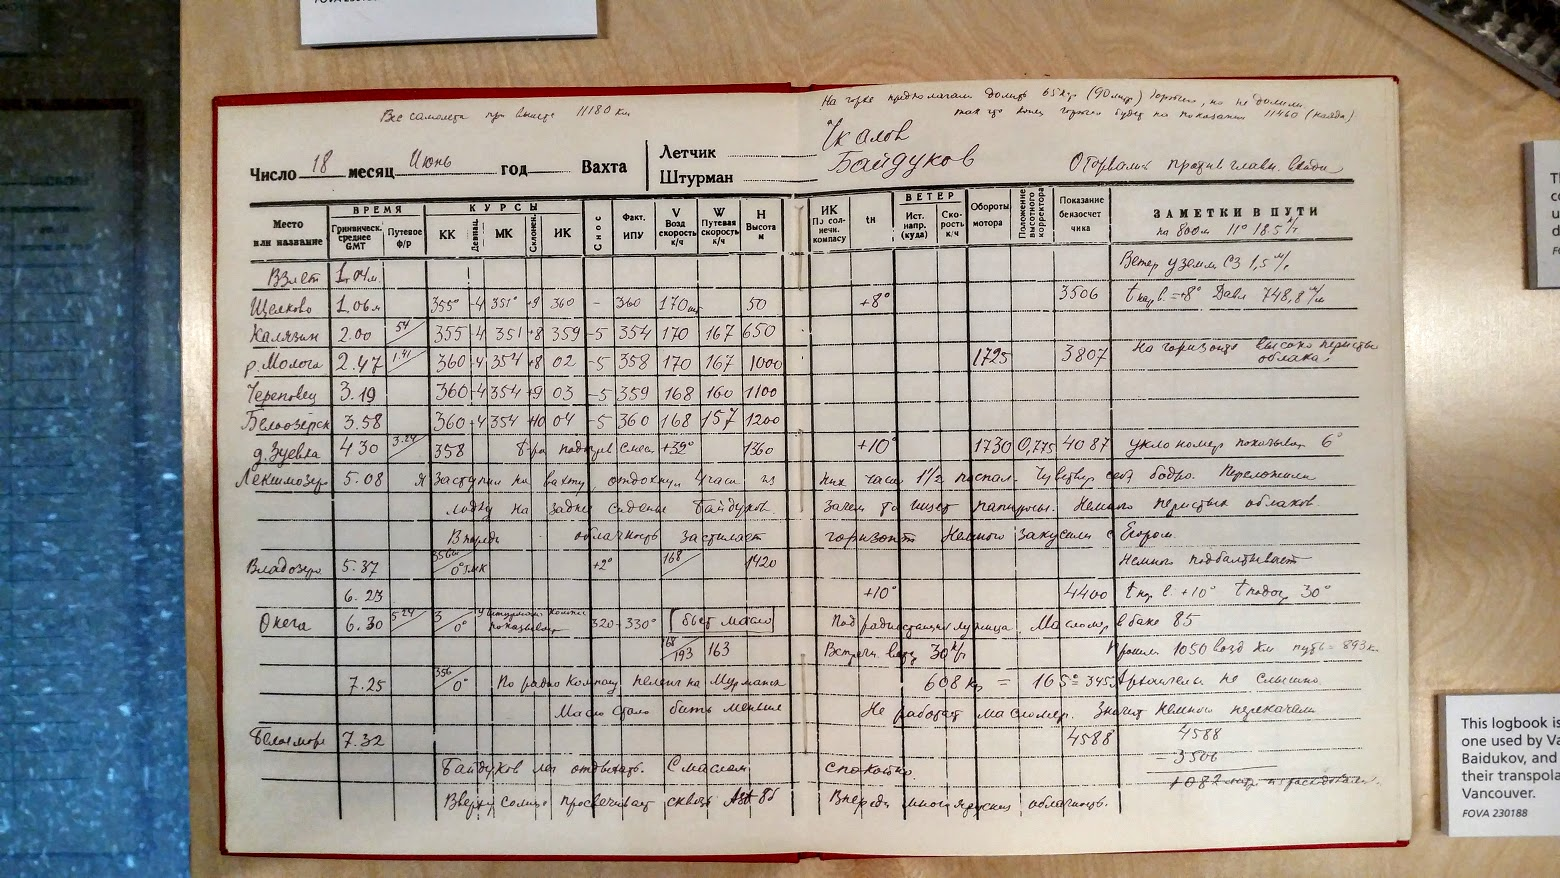 FOVA 230188
Вес самолета при вылете 11180 км
На горке предполагали долить 65 кг (90 литр) горючего, но не долили.
так что конец горючего будет на показании 11460 (надо)
Число 18 месяц Июнь год Вахта
Летчик Чкалов
Штурман Байдуков
Оторвались против главн.
Место или название
ВРЕМЯ
Гринвическ. среднее GMT
Путевое ф/р
КУРСЫ
КК Девиац. МК Склонен. ИК
Снос
Факт. ИПУ
V Возд скорость к/ч
W Путевая скорость к/ч
H Высота м
ИК По солнечн. компасу
tн
ВЕТЕР
Ист. напр. (куда)
Скорость к/ч
Обороты мотора
Положение высотного корректора
Показание бензосчетчика
ЗАМЕТКИ В ПУТИ
на 800м 11° 18.5 м/с
Взлет 1.04м. Ветер у земли СЗ 1,5 м/с
Щелково 1.06м 355° -4 351° +9 360 - 360 170 50 +8° 3506 t нар в. = +8° Давл 748,8 м/м
Калязин 2.00 54 355 -4 351 +8 359 -5 354 170 167 650
р. Молога 2.47 1.41 360 -4 354 +8 02 -5 358 170 167 1000 1725 3807 На горизонте высоко перистые облака.
Череповец 3.19 360 -4 354 +9 03 -5 359 168 160 1100
Белоозерск 3.58 360 -4 354 +10 04 -5 360 168 157 1200
д. Зуевка 4 30 3.24 358 t-ра подогрев смеси +32° 1360 +10° 1730 0,775 4087 уклономер показывает 6°
Лекшмозеро 5.08 Я заступил на вахту, отдохнул 4 часа из них часа 1 1/2 поспал. Чувствую себя бодро. Переложили
лодку на заднее сиденье Байдуков зачем то ищет папиросы. Немного перистых облаков
Впереди облачность застилает горизонт Немного закусили с Егором.
Владозеро 5.37 356 0° +2° 168 1420 Немного подбалтывает
6.23 +10° 4400 t нар в. +10° t подог 30°
Онега 6.30 5 24 3 0° У штурмана компас показывает 320-330° бьет масло Под радиостанция лужица. Масломер в баке 85
168 193 163 Встречн ветер 30 к/ч Прошли 1050 возд км путь = 893 к.
7.25 356 0° По радио компасу пеленг на Мурманск 608 кц = 165° = 345 Архангельск не слышно.
Масло стало бить меньше Не работает масломер. Значит немного перекачали
Белое море 7.32 4588 4588
3506
Байдуков лег отдыхать. С маслом спокойно. 1082
Вверху солнце просвечивает сквозь Ast Впереди многоярусная облачность.
This logbook is
one used by Va
Baidukov, and
their transpola
Vancouver.
FOVA 230188